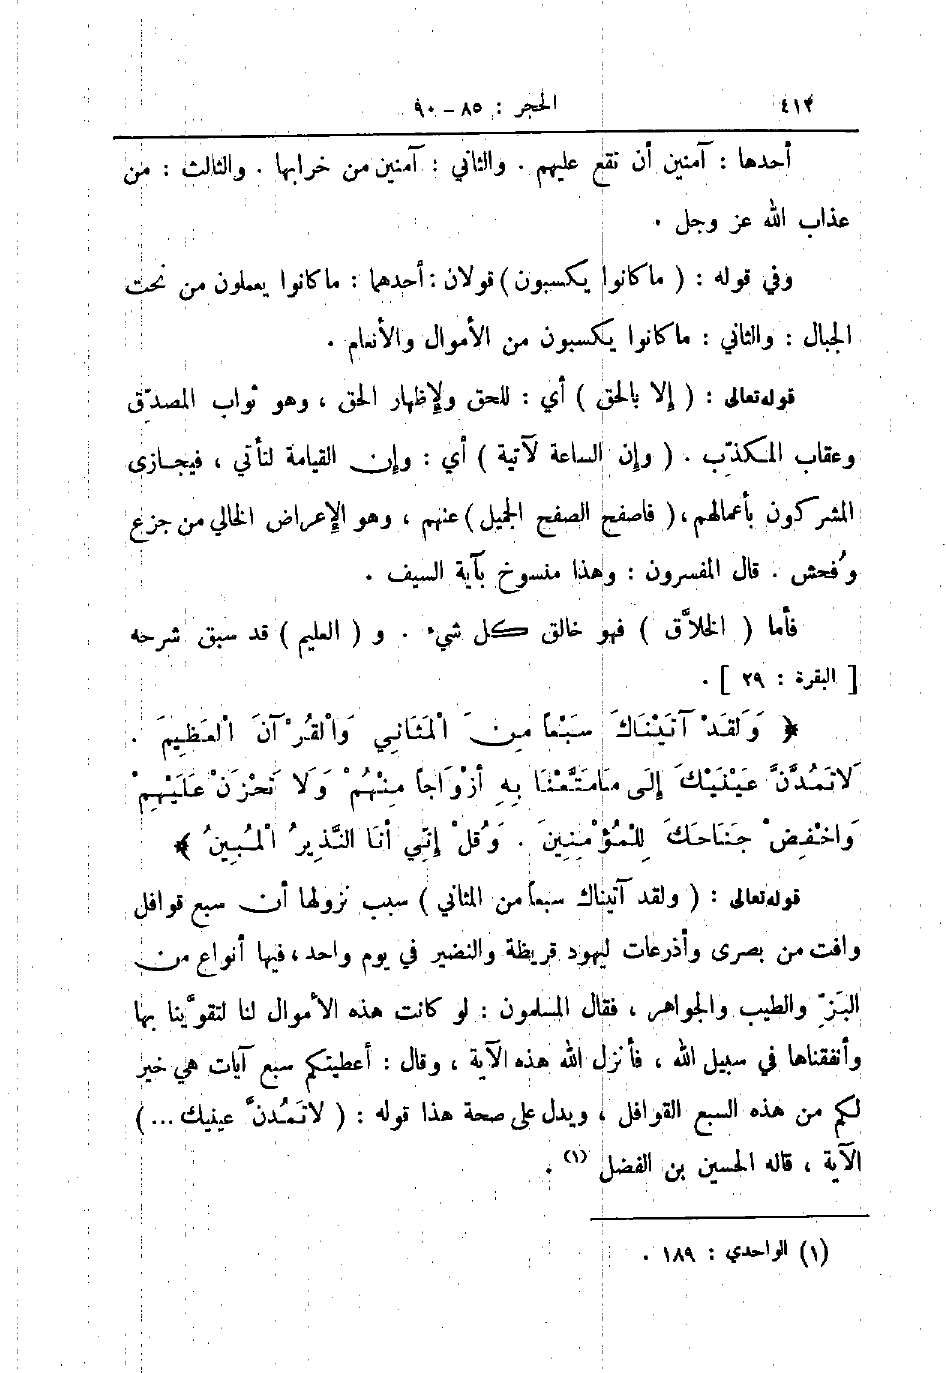 ٤١٣ الحجر : ٨٥ - ٩٠
أحدها : آمنين أن تقع عليهم . والثاني : آمنين من خرابها . والثالث : من
عذاب الله عز وجل .
وفي قوله : ( ما كانوا يكسبون ) قولان : أحدهما : ما كانوا يعملون من نحت
الجبال : والثاني : ما كانوا يكسبون من الأموال والأنعام .
قوله تعالى : ( إلا بالحق ) أي : للحق ولإظهار الحق ، وهو ثواب المصدِّق
وعقاب المكذِّب . ( وإن الساعة لآتية ) أي : وإن القيامة لتأتي ، فيجازى
المشركون بأعمالهم ، ( فاصفح الصفح الجميل ) عنهم ، وهو الإعراض الخالي من جزع
وفُحش . قال المفسرون : وهذا منسوخ بآية السيف .
فأما ( الخلاَّق ) فهو خالق كل شيء . و ( العليم ) قد سبق شرحه
[ البقرة : ٢٩ ] .
﴿ وَلَقَدْ آتَيْنَاكَ سَبْعاً مِنَ الْمَثَانِي وَالْقُرْآنَ الْعَظِيمَ .
لَا تَمُدَّنَّ عَيْنَيْكَ إِلَى مَا مَتَّعْنَا بِهِ أَزْوَاجاً مِنْهُمْ وَلَا تَحْزَنْ عَلَيْهِمْ
وَاخْفِضْ جَنَاحَكَ لِلْمُؤْمِنِينَ . وَقُلْ إِنِّي أَنَا النَّذِيرُ الْمُبِينُ ﴾
قوله تعالى : ( ولقد آتيناك سبعاً من المثاني ) سبب نزولها أن سبع قوافل
وافت من بصرى وأذرعات ليهود قريظة والنضير في يوم واحد ، فيها أنواع من
البَزِّ والطيب والجواهر ، فقال المسلمون : لو كانت هذه الأموال لنا لتقوَّينا بها
وأنفقناها في سبيل الله ، فأنزل الله هذه الآية ، وقال : أعطيتكم سبع آيات هي خير
لكم من هذه السبع القوافل ، ويدل على صحة هذا قوله : ( لا تَمُدنَّ عينيك ... )
الآية ، قاله الحسين بن الفضل (١) .
(١) الواحدي : ١٨٩ .